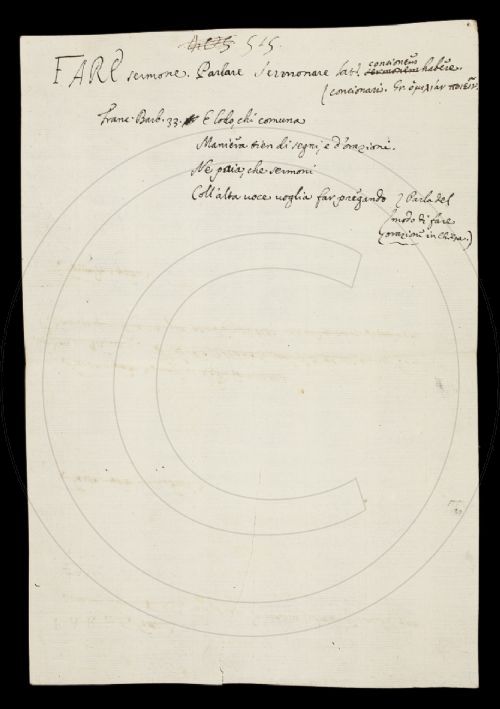 515.
FARE sermone. Parlare Sermonare. Lat. concionem habere.
concionari. Gr. ὁμιλίαν ποιεῖν.
Franc. Barb. 33. E lodo, chi comuna
Maniera tien di segni, e d'orazioni.
Ne paia, che sermoni
Coll'alta voce voglia far pregando
(Parla del
modo di fare
orazione in Chiesa.)